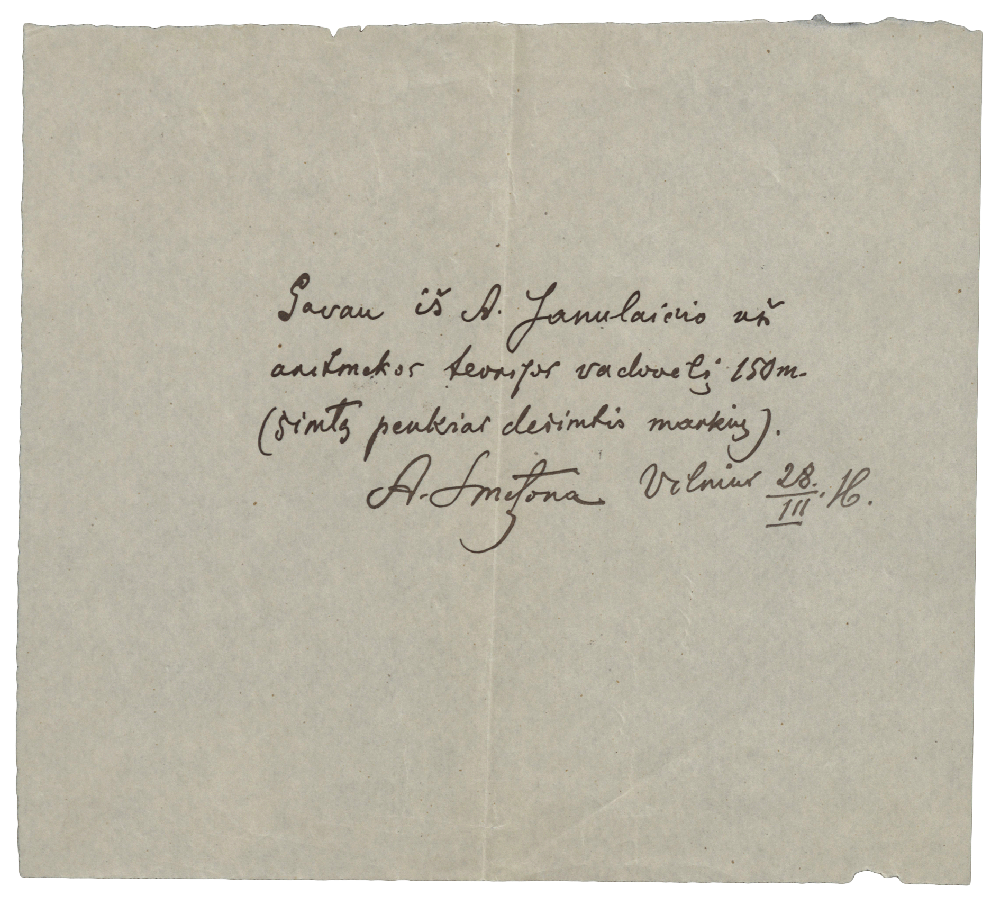 Gavau iš A. Janulaičio už
aritmetikos teorijos vadovėlį 150 m.
(šimtą penkias dešimtis markių).
A. Smetona Vilnius 28./III.16.